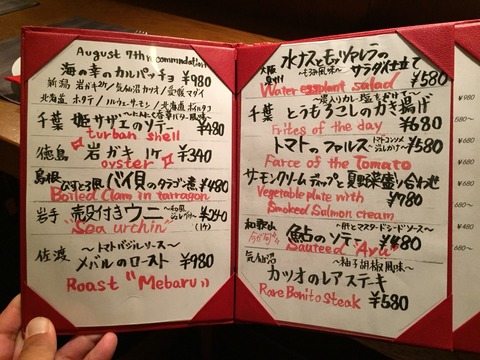 August 7th recommendation
海の幸のカルパッチョ ¥980
新潟 岩ガキ 気仙沼 カツオ/愛媛マダイ
北海道 ホタテ/ノルウェーサーモン/北海道 ボイルタコ
千葉 姫サザエのソテー ¥480
turban shell
徳島 岩ガキ 1ケ ¥340
oyster
島根 バイ貝のタラゴン煮 ¥480
Boiled Clam in tarragon
岩手 殻付きウニ ¥240
(1ケ)
"Sea urchin"
〜トマトバジルソース〜
佐渡 メバルのロースト ¥980
Roast "Mebaru"
大阪 泉州 水ナスとモッツァレラの
サラダ仕立て ¥580
Water eggplant salad
千葉 とうもろこしのかき揚げ
¥680
Frites of the day
トマトのファルス ¥580
Farce of the Tomato
サーモンクリームディップと夏野菜盛り合わせ
¥780
Vegetable plate with
Smoked Salmon cream
〜肝とマスタードシードソース〜
和歌山 鮎のソテー ¥480
Sauteed "Ayu"
〜柚子胡椒風味〜
気仙沼 カツオのレアステーキ
Rare Bonito Steak ¥580
¥980